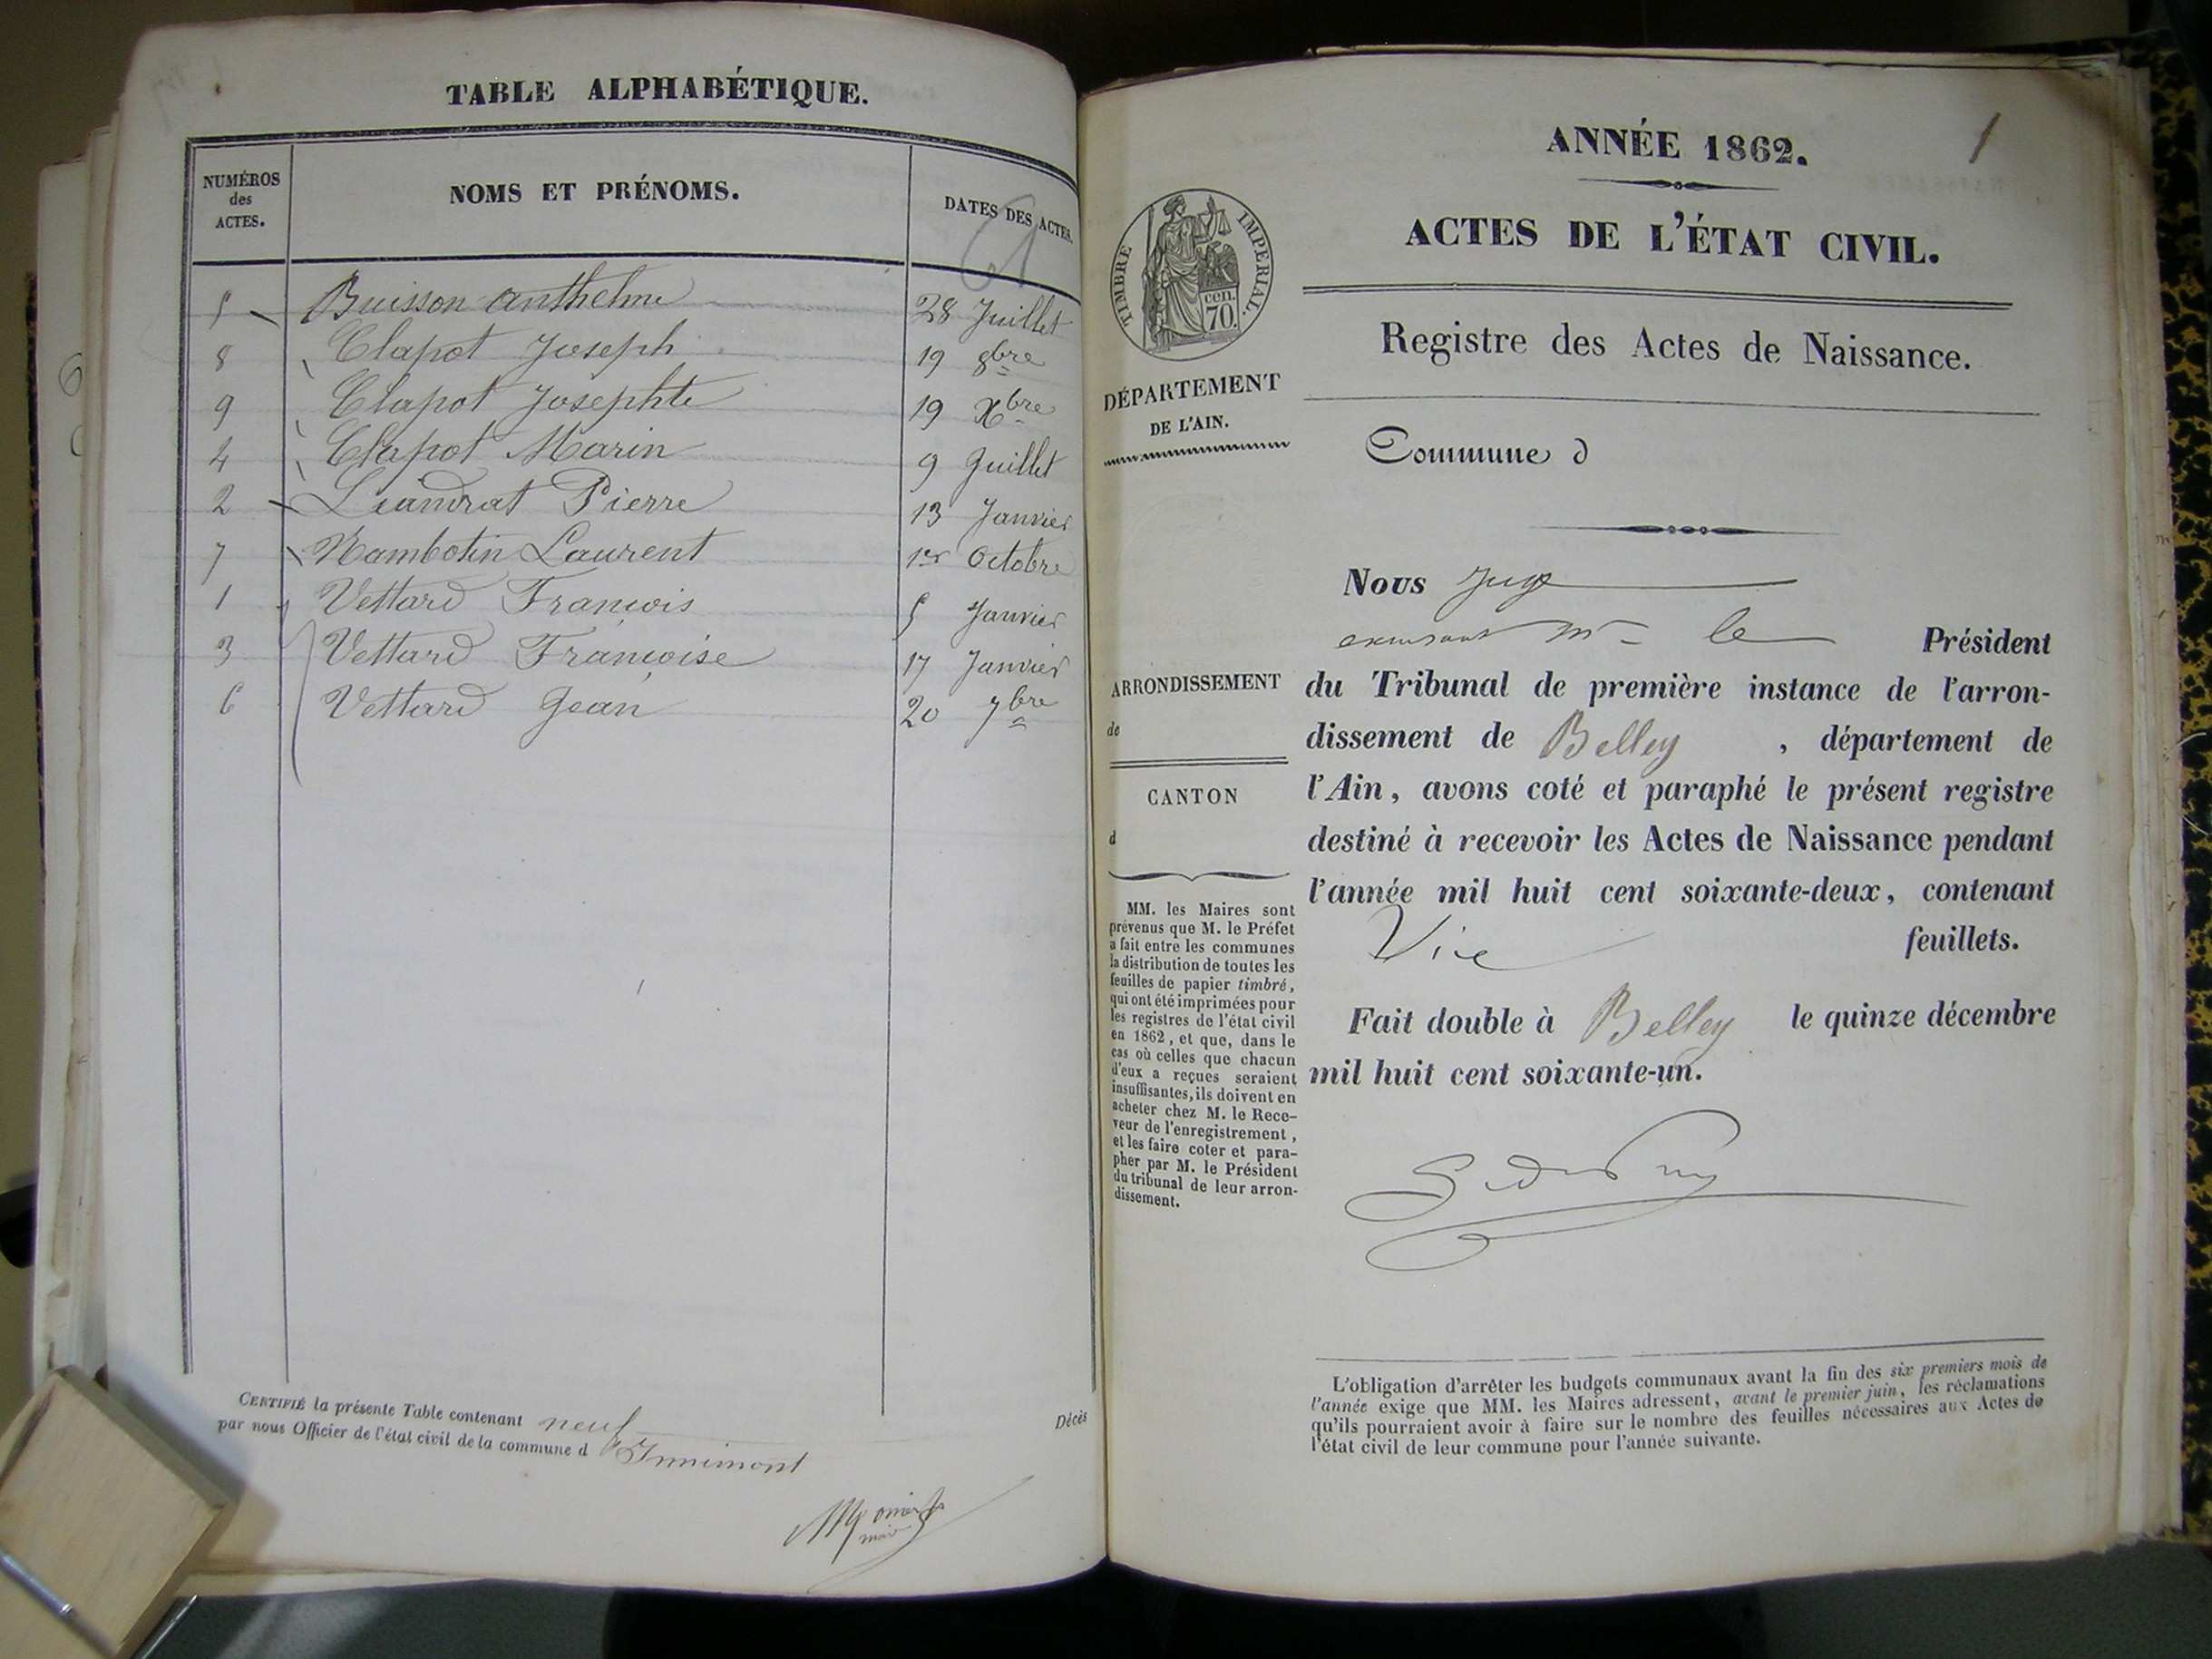 TABLE ALPHABÉTIQUE.
NUMÉROS
des
ACTES.
NOMS ET PRÉNOMS.
DATES DES ACTES.
5 Buisson anthelme 28 Juillet
8 Clapot Joseph 19 8bre
9 Clapot Josephte 19 Xbre
4 Clapot Marin 9 Juillet
2 Liandrat Pierre 13 Janvier
7 Rambotin Laurent 1er Octobre
1 Vettard François 5 Janvier
3 Vettard Françoise 17 Janvier
6 Vettard Jean 20 7bre
CERTIFIÉ la présente Table contenant neuf Décès
par nous Officier de l'état civil de la commune d'Innimont
maire
1
ANNÉE 1862.
ACTES DE L'ÉTAT CIVIL.
TIMBRE IMPÉRIAL.
cen.
70.
Registre des Actes de Naissance.
DÉPARTEMENT
DE L'AIN.
Commune d
Nous Juge
excusant Mr le Président
ARRONDISSEMENT
de
CANTON
d
du Tribunal de première instance de l'arron-
dissement de Belley , département de
l'Ain, avons coté et paraphé le présent registre
destiné à recevoir les Actes de Naissance pendant
l'année mil huit cent soixante-deux, contenant
feuillets.
Fait double à Belley le quinze décembre
mil huit cent soixante-un.
MM. les Maires sont
prévenus que M. le Préfet
a fait entre les communes
la distribution de toutes les
feuilles de papier timbré,
qui ont été imprimées pour
les registres de l'état civil
en 1862, et que, dans le
cas où celles que chacun
d'eux a reçues seraient
insuffisantes, ils doivent en
acheter chez M. le Rece-
veur de l'enregistrement,
et les faire coter et para-
pher par M. le Président
du tribunal de leur arron-
dissement.
L'obligation d'arrêter les budgets communaux avant la fin des six premiers mois de
l'année exige que MM. les Maires adressent, avant le premier juin, les réclamations
qu'ils pourraient avoir à faire sur le nombre des feuilles nécessaires aux Actes de
l'état civil de leur commune pour l'année suivante.